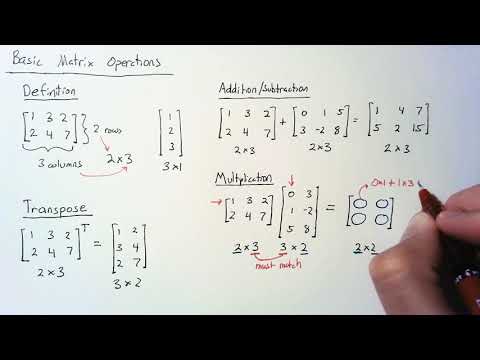 Basic Matrix Operations
Definition
[1 3 2
2 4 7] } 2 rows
3 columns
2×3
[1
2
3]
3×1
Transpose
[1 3 2
2 4 7]ᵀ = [1 2
3 4
2 7]
2×3
3×2
Addition/Subtraction
[1 3 2
2 4 7] + [0 1 5
3 -2 8] = [1 4 7
5 2 15]
2×3 2×3 2×3
Multiplication
0×1+1×3
[1 3 2
2 4 7] [0 3
1 -2
5 8] =
2×3 3×2 2×2
must match